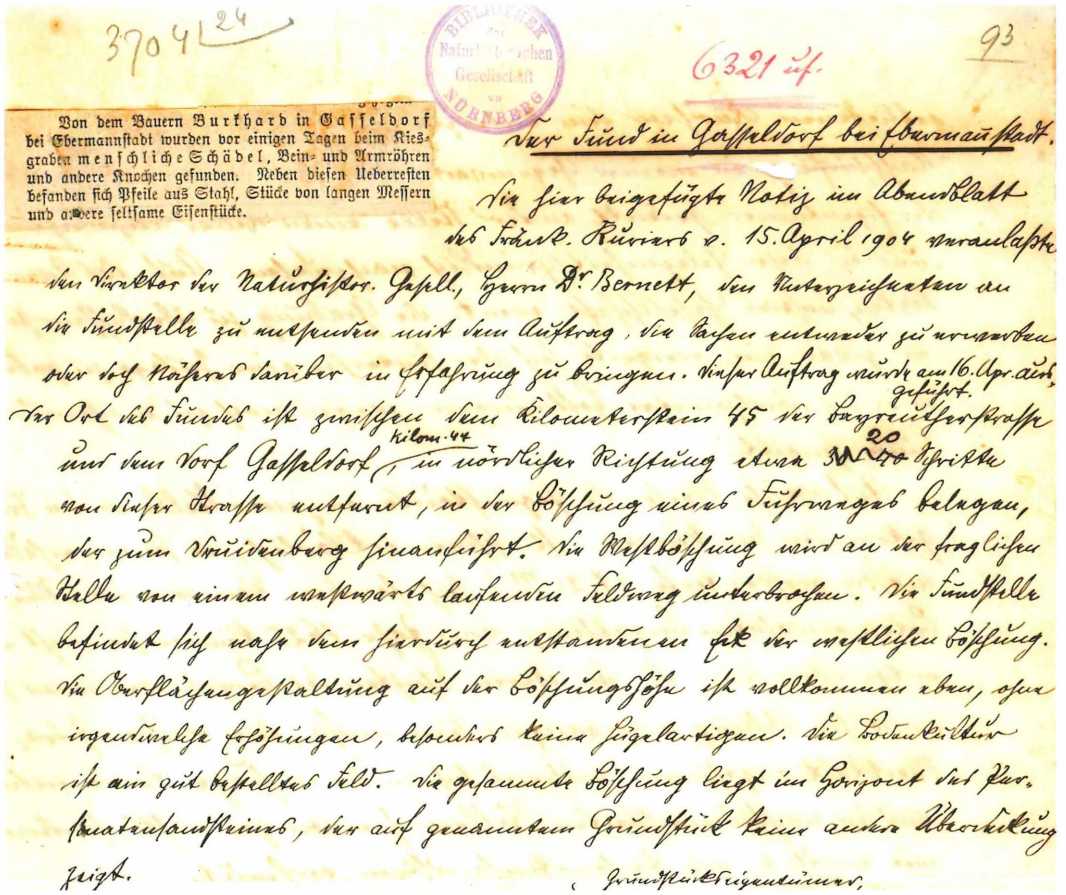 3704 24
BIBLIOTHEK
der
Naturhistorischen
Gesellschaft
zu
NÜRNBERG
6321 uf.
93
Von dem Bauern Burkhard in Gasseldorf
bei Ebermannstadt wurden vor einigen Tagen beim Kies-
graben menschliche Schädel, Bein- und Armröhren
und andere Knochen gefunden. Neben diesen Ueberresten
befanden sich Pfeile aus Stahl, Stücke von langen Messern
und andere seltsame Eisenstücke.
Der Fund in Gasseldorf bei Ebermañstadt.
Die hier beigefügte Notiz im Abendblatt
des Fränk. Kuriers v. 15. April 1904 veranlaßte
den Direktor der Naturhistor. Gesell., Herrn Dr. Bernett, den Unterzeichneten an
die Fundstelle zu entsenden mit dem Auftrag, die Sachen entweder zu erwerben
oder doch Näheres darüber in Erfahrung zu bringen. Dieser Auftrag wurde am 16. Apr. aus-
geführt.
Der Ort des Fundes ist zwischen dem Kilometerstein 45 der Bayreutherstrasse
und dem Dorf Gasseldorf, Kilom. 44 in nördlicher Richtung etwa 20 Schritte
von dieser Strasse entfernt, in der Böschung eines Fuhrweges belegen,
der zum Druidenberg hinanführt. Die Westböschung wird an der fraglichen
Stelle von einem westwärts laufenden Feldweg unterbrochen. Die Fundstelle
befindet sich nahe dem hierdurch entstandenen Eck der westlichen Böschung.
Die Oberflächengestaltung auf der Böschungshöhe ist vollkommen eben, ohne
irgendwelche Erhöhungen, besonders keine hügelartigen. Die Bodenkultur
ist ein gut bestelltes Feld. Die gesammte Böschung liegt im Horizont des Per-
sonatensandsteines, der auf genanntem Grundstück keine andere Überdeckung
zeigt.
Grundstückseigentümer,